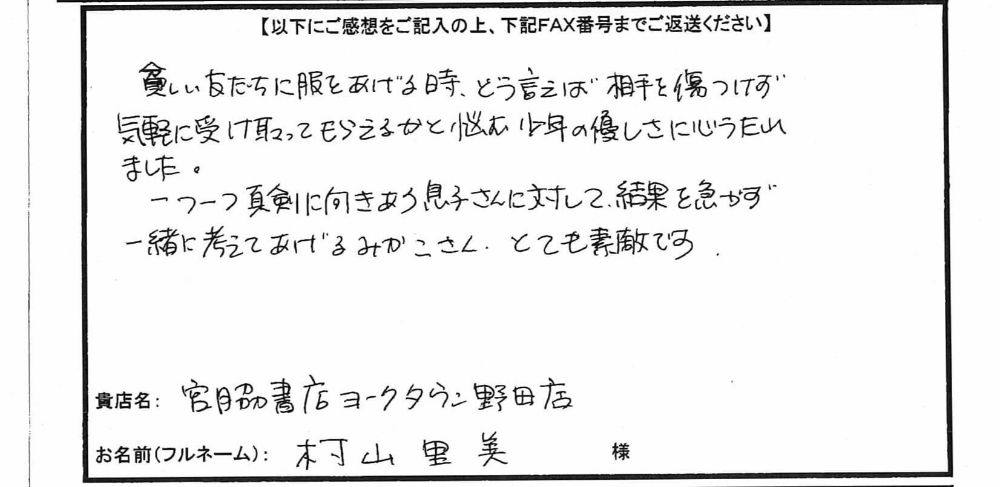 【以下にご感想をご記入の上、下記FAX番号までご返送ください】
貧しい友だちに服をあげる時、どう言えば相手を傷つけず
気軽に受け取ってもらえるかと悩む少年の優しさに心うたれ
ました。
一つ一つ真剣に向きあう息子さんに対して、結果を急がず
一緒に考えてあげるみかこさん、とても素敵です.
貴店名: 宮脇書店ヨークタウン野田店
お名前(フルネーム): 村山里美 様